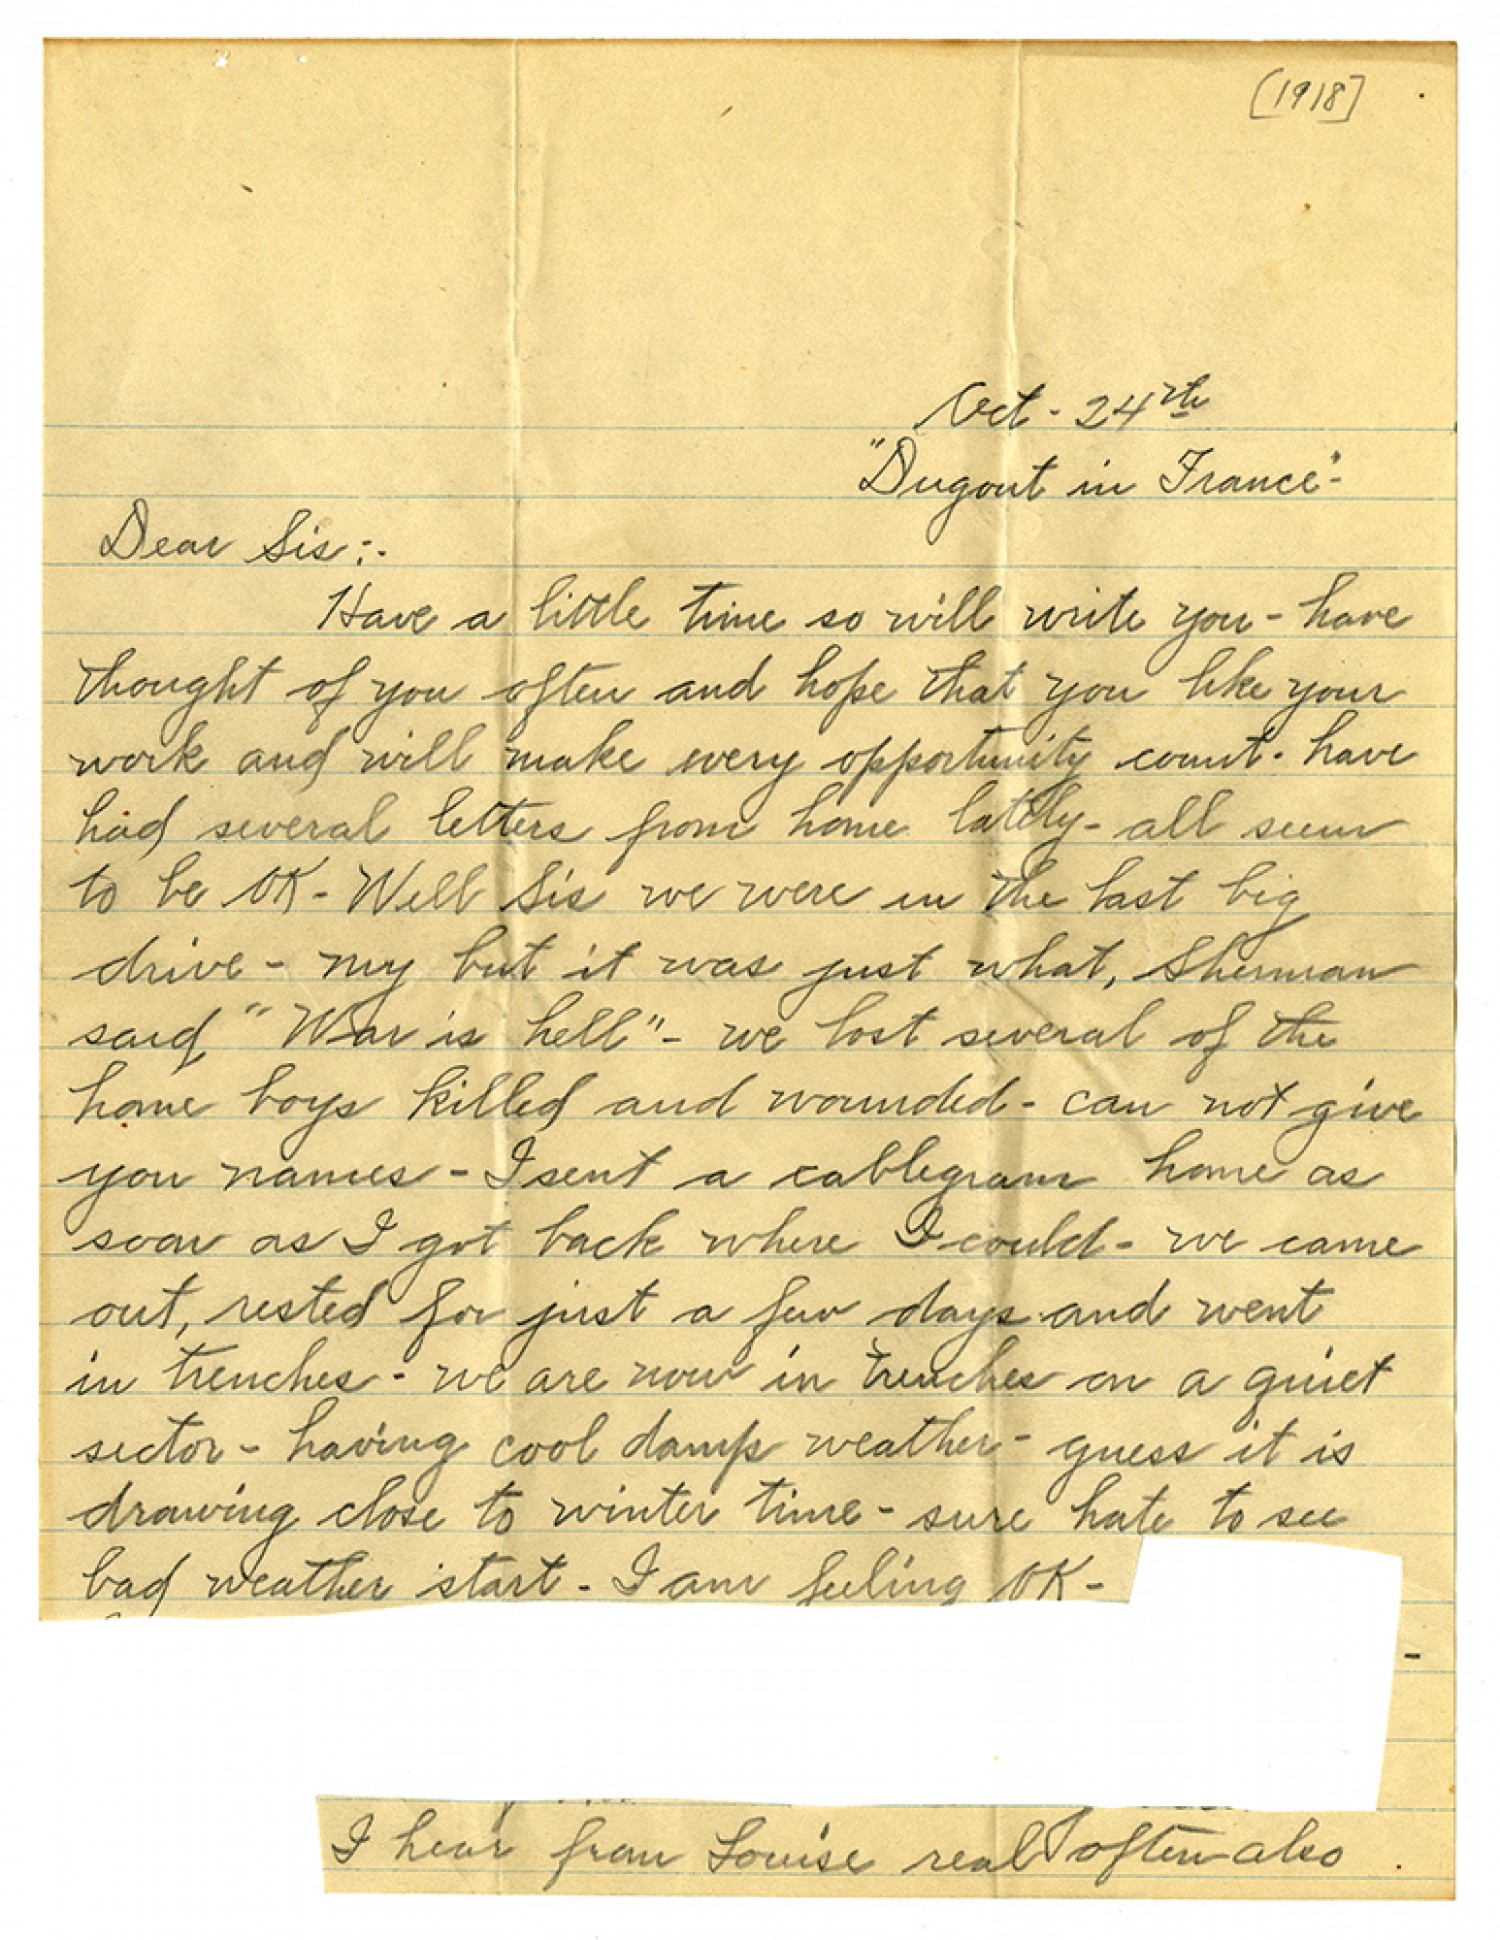 [1918]
Oct - 24th
"Dugout in France"-
Dear Sis:-
Have a little time so will write you - have
thought of you often and hope that you like your
work and will make every opportunity count - have
had several letters from home lately - all seem
to be OK - Well Sis we were in the last big
drive - my but it was just what, Sherman
said, "War is hell" - we lost several of the
home boys killed and wounded - can not give
you names - I sent a cablegram home as
soon as I got back where I could - we came
out, rested for just a few days and went
in trenches - we are now in trenches on a quiet
sector - having cool damp weather - guess it is
drawing close to winter time - sure hate to see
bad weather start - I am feeling OK -
I hear from Louise real often also